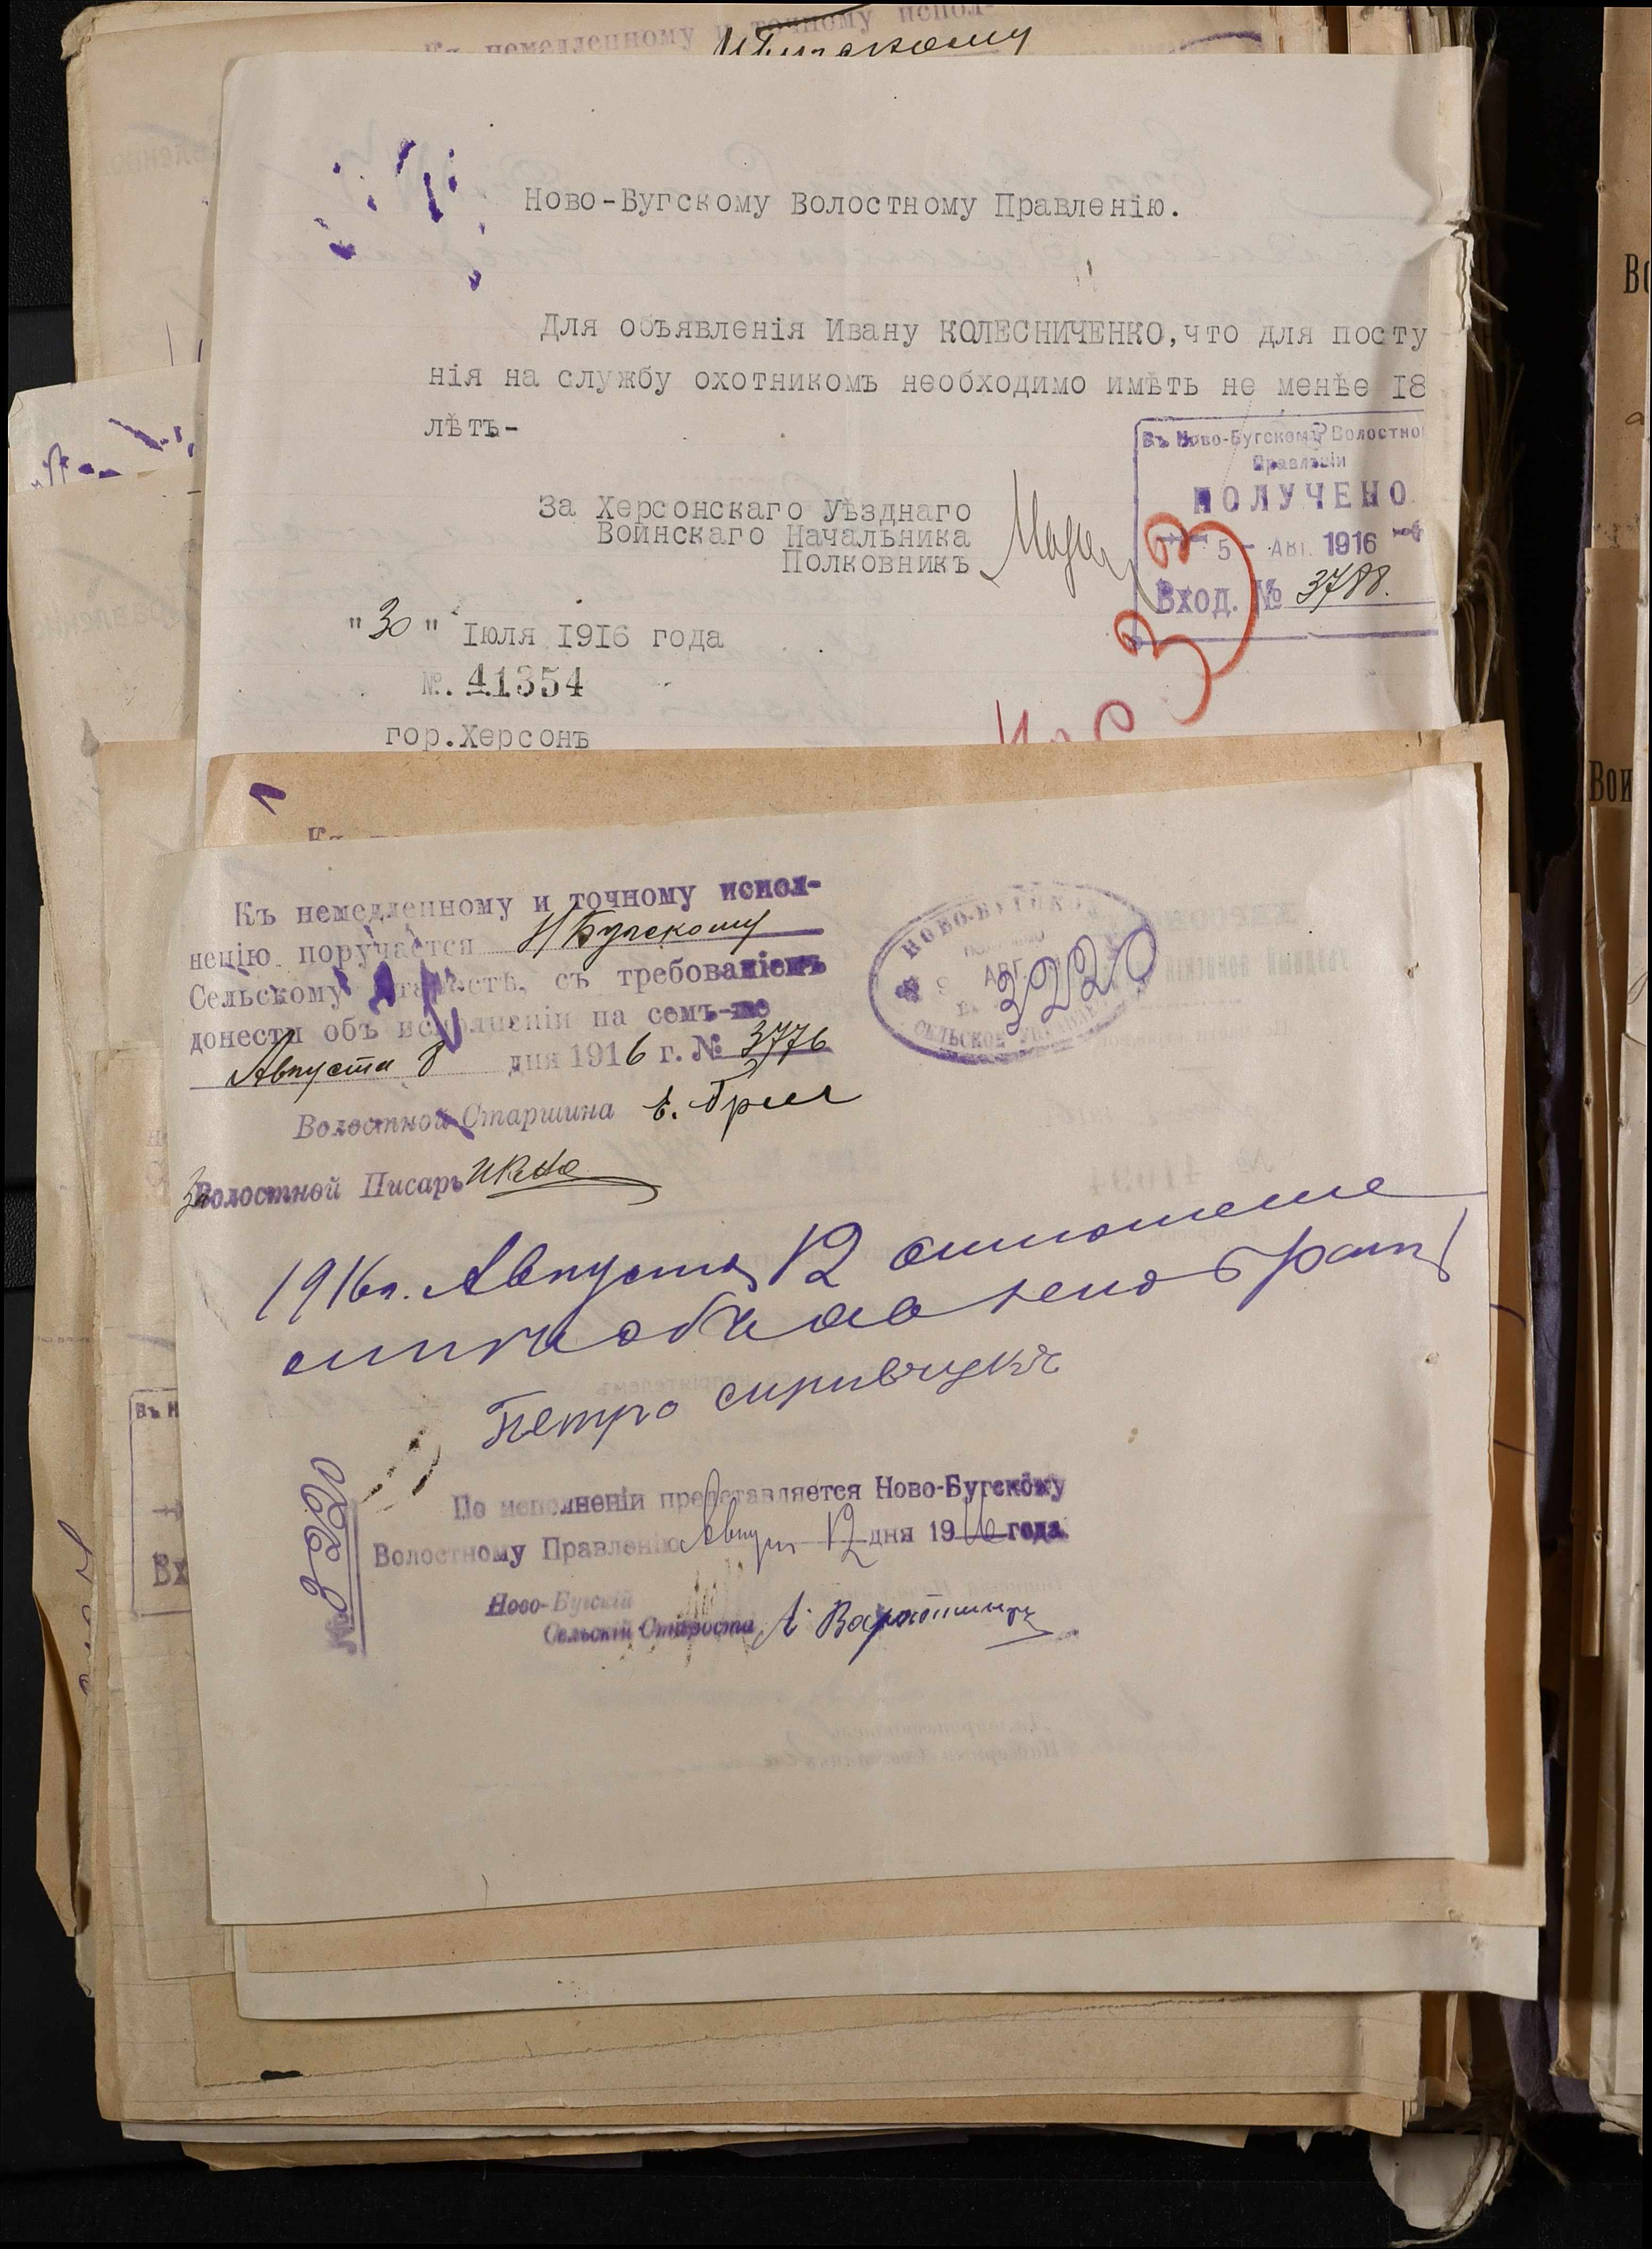 Къ немедленному и точному испол-
Ново-Бугскому Волостному Правленію.
Для объявленія Ивану КОЛЕСНИЧЕНКО, что для посту
нія на службу охотникомъ необходимо имѣть не менѣе I8
лѣтъ-
Въ Ново-Бугскомъ Волостно
Правленіи
ПОЛУЧЕНО
5 - АВГ. 1916
Вход. № 3788.
За Херсонскаго Уѣзднаго
Воинскаго Начальника
Полковникъ
"30" Іюля I9I6 года
№. 41354
гор. Херсонъ
33
Къ немедленному и точному испол-
ненію поручается Н Бугскому
Сельскому Старостѣ, съ требованіемъ
донести объ исполненіи на семъ-же
Августа 8 дня 1916 г. № 3776
Волостной Старшина
За Волостной Писарь
НОВО-БУГСКОЕ
9 АВГ.
3220
СЕЛЬСКОЕ УПРАВЛЕ
1916 г. Августа 12
Петро
По исполненіи представляется Ново-Бугскому
Волостному Правленію Август 12 дня 1916 года.
Ново-Бугскій
Сельскій Староста
№ 3220
Въ Н
Вх
Во
Вои